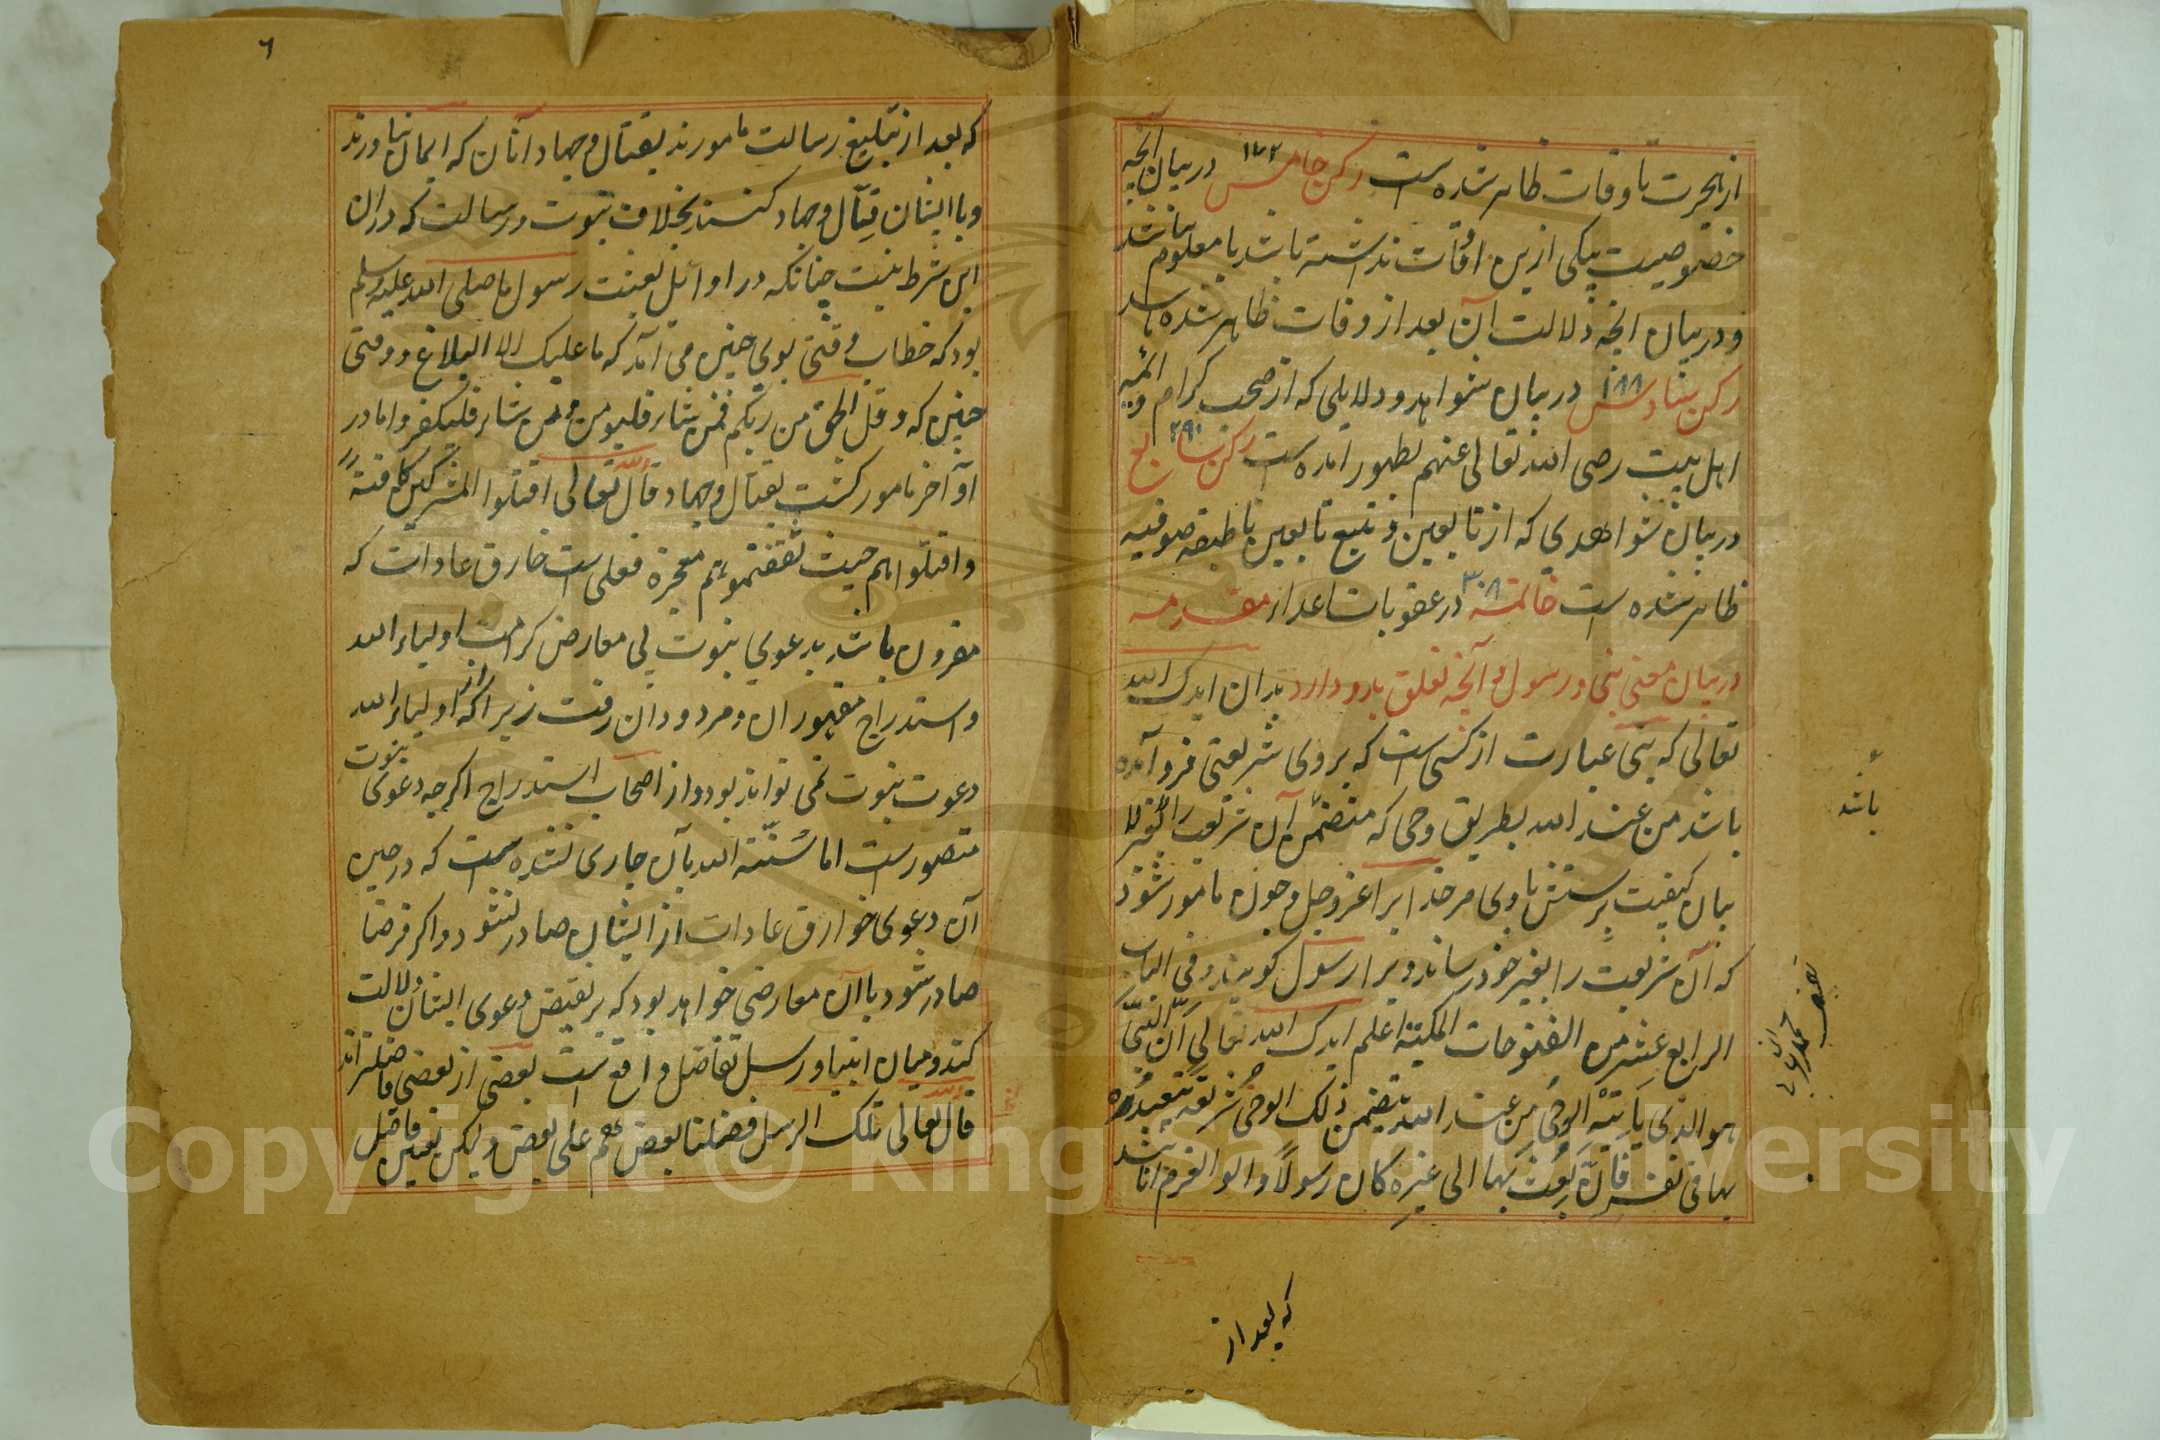 از هجرت تا وفات ظاهر شده است رکن خامس ۱۷۲ در بیان آنچه
خصوصیت بیکی ازین اوقات نداشته باشد یا معلوم نباشد
و در بیان آنچه دلالت آن بعد از وفات ظاهر شده باشد
رکن سادس ۱۸۸ در بیان شواهد و دلایلی که از صحب کرام و ائمه
اهل بیت رضی الله تعالی عنهم بظهور آمده است رکن سابع ۲۹۰
در بیان شواهدی که از تابعین و تبع تابعین تا طبقه صوفیه
ظاهر شده است خاتمه ۳۰۸ در عقوبات اعدا مقدمه
در بیان معنی نبی و رسول و آنچه تعلق بدو دارد بدان ایدک الله
تعالی که نبی عبارت از کسی است که بروی شریعتی فرو آمده
باشد من عند الله بطریق وحی که متضمن آن شریعت
بیان کیفیت پرستش باوی مر خدایرا عز وجل و چون مامور شود
که آن شریعت را بغیر خود رساند ویرا رسول کویند و فی الباب
الرابع عشر من الفتوحات المکیة اعلم ایدک الله تعالی أن النبی
هو الذی یأتیه الوحی من عند الله یتضمن ذلک الوحی شریعة یتعبده
بها فی نفسه فان بعث بها الی غیره کان رسولا و الوا العزم آنا باشد
باشد
که بعد از
٦
که بعد از تبلیغ رسالت مامورند بقتال و جهاد آنان که ایمان نیاورند
و با ایشان قتال و جهاد کنند بخلاف نبوت و رسالت که در ان
این شرط نیست چنانکه در اوائل بعثت رسول ما صلی الله علیه وسلم
بود که خطاب وقتی بوی چنین می آمد که ما علیک الا البلاغ و وقتی
چنین که و قل الحق من ربکم فمن شاء فلیؤمن و من شاء فلیکفر و اما در
اواخر مامور کشت بقتال و جهاد قال الله تعالی اقتلوا المشرکین کافة
و اقتلواهم حیث ثقفتموهم معجزه فعلی است خارق عادات که
مقرون باشد بدعوی نبوت بی معارض کرامت اولیاء الله
و استدراج مقهوران و مردودان رفت زیرا که از اولیاء الله
دعوت نبوت نمی تواند بود و از اصحاب استدراج اگرچه دعوی نبوت
متصور است اما سنة الله بآن جاری نشده است که در حین
آن دعوی خوارق عادات از ایشان صادر نشود و اگر فرضا
صادر شود با آن معارضی خواهد بود که بر نقیض دعوی ایشان دلالت
کند و میان انبیا و رسل تفاضل واقع است بعضی از بعضی فاضلتر اند
قال الله تعالی تلک الرسل فضلنا بعضهم علی بعض و لیکن تعیین فاضل
Copyright © King Saud University